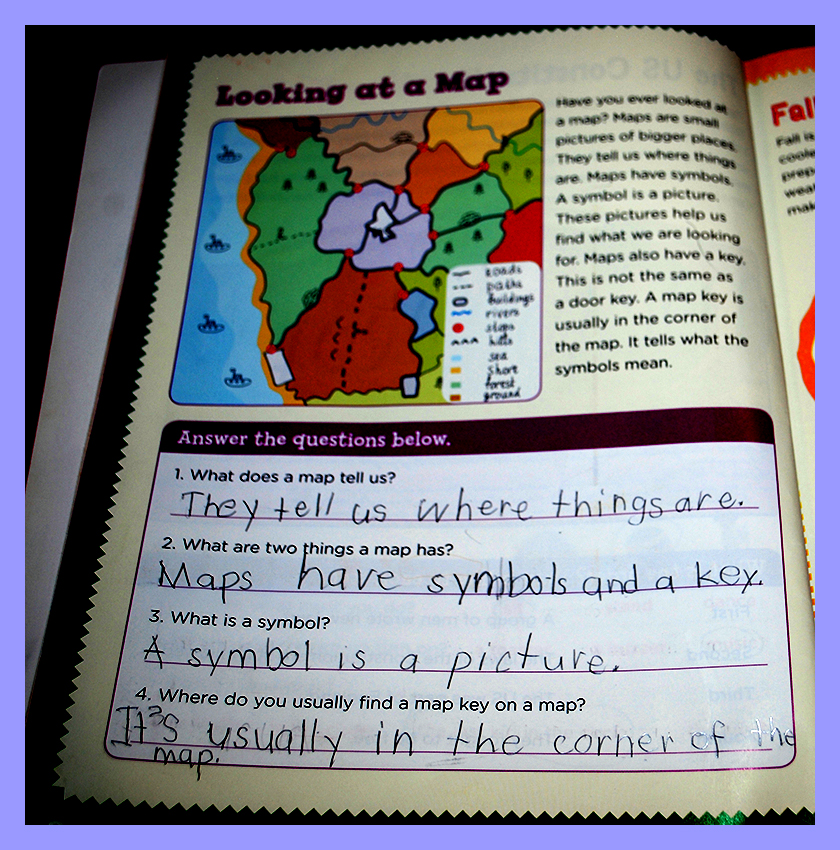 Looking at a Map
Have you ever looked at
a map? Maps are small
pictures of bigger places.
They tell us where things
are. Maps have symbols.
A symbol is a picture.
These pictures help us
find what we are looking
for. Maps also have a key.
This is not the same as
a door key. A map key is
usually in the corner of
the map. It tells what the
symbols mean.
roads
paths
buildings
rivers
stops
hills
sea
short
forest
ground
Answer the questions below.
1. What does a map tell us?
They tell us where things are.
2. What are two things a map has?
Maps have symbols and a key.
3. What is a symbol?
A symbol is a picture.
4. Where do you usually find a map key on a map?
It's usually in the corner of the
map.
Fal
Fall is
coole
prep
wea
mak